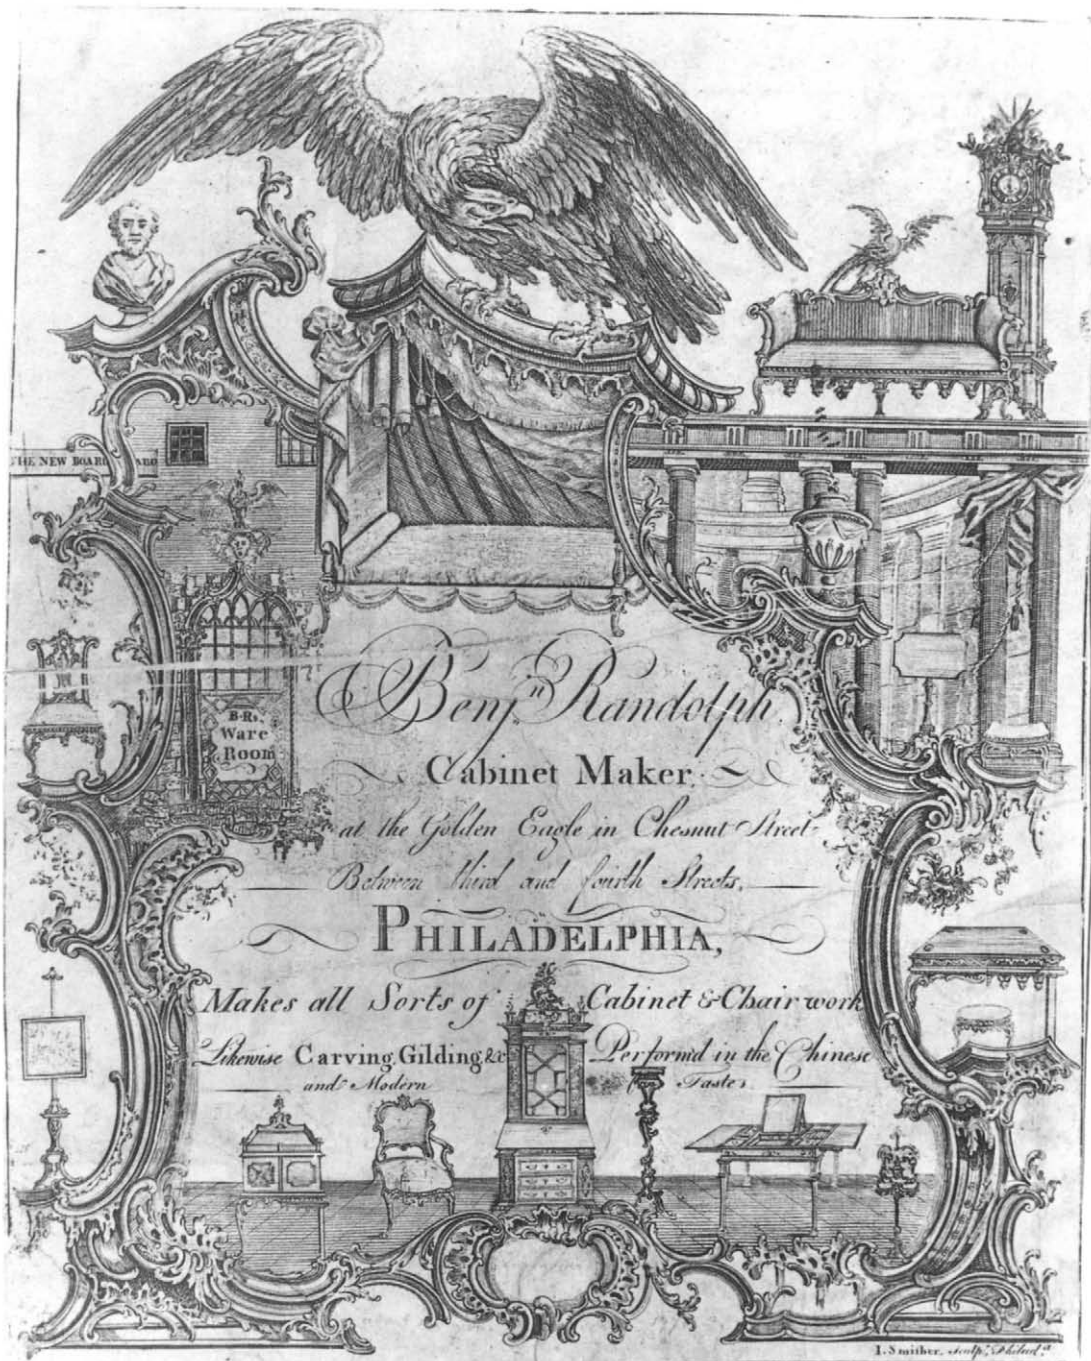 THE NEW BOAR
B·Rs.
Ware
Room
Benjn. Randolph.
Cabinet Maker.
at the Golden Eagle in Chesnut Street
Between third and fourth Streets.
PHILADELPHIA,
Makes all Sorts of Cabinet & Chair work
Likewise Carving, Gilding, &c Perform'd in the Chinese
and Modern Taste.
I. Smither. Sculp. Philad.a